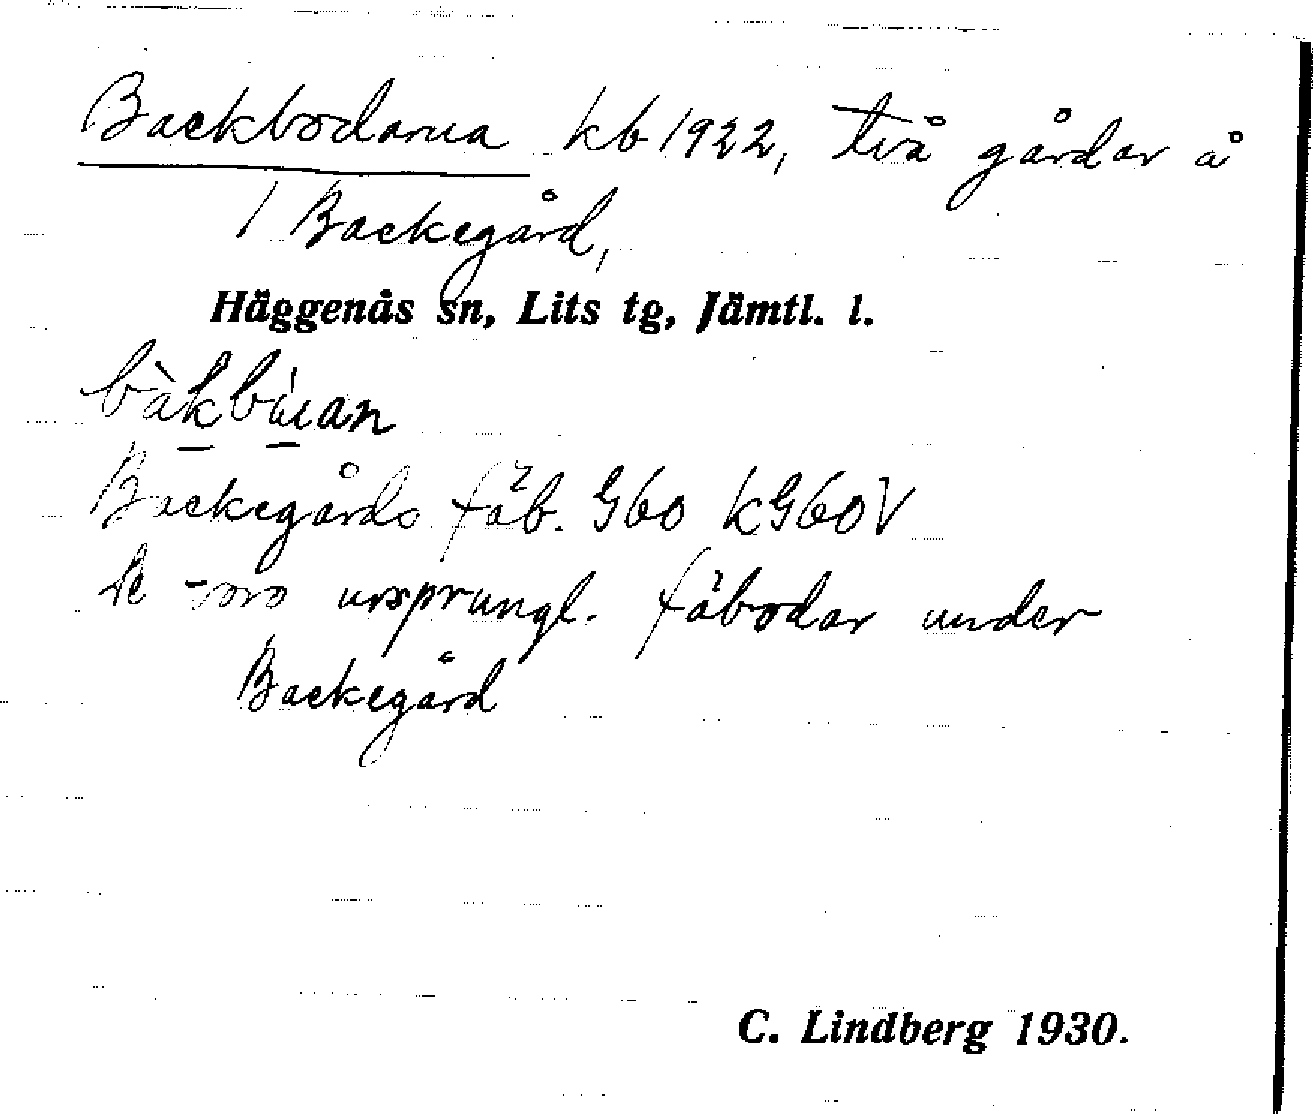 Backbodarna kb 1922, två gårdar å
1 Backegård,
Häggenås sn, Lits tg, Jämtl. l.
Backegårds fäb. G60 kG60V
De voro ursprungl. fäbodar under
Backegård
C. Lindberg 1930.